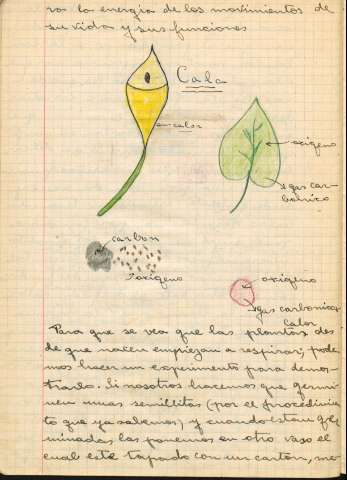 ra la energia de los movimientos de
su vida y sus funciones
Cala
calor
oxigeno
gas car-
bonico
carbon
oxigeno
oxigeno
gas carbonico
calor
Para que se vea que las plantas des
de que nacen empiezan a respirar, pode
mos hacer un experimento para demos-
trarlo. Si nosotros hacemos que germi
nen unas semillitas (por el procedimien
to que ya sabemos) y cuando estan ger
minadas las ponemos en otro vaso el
cual este tapado con un carton, no